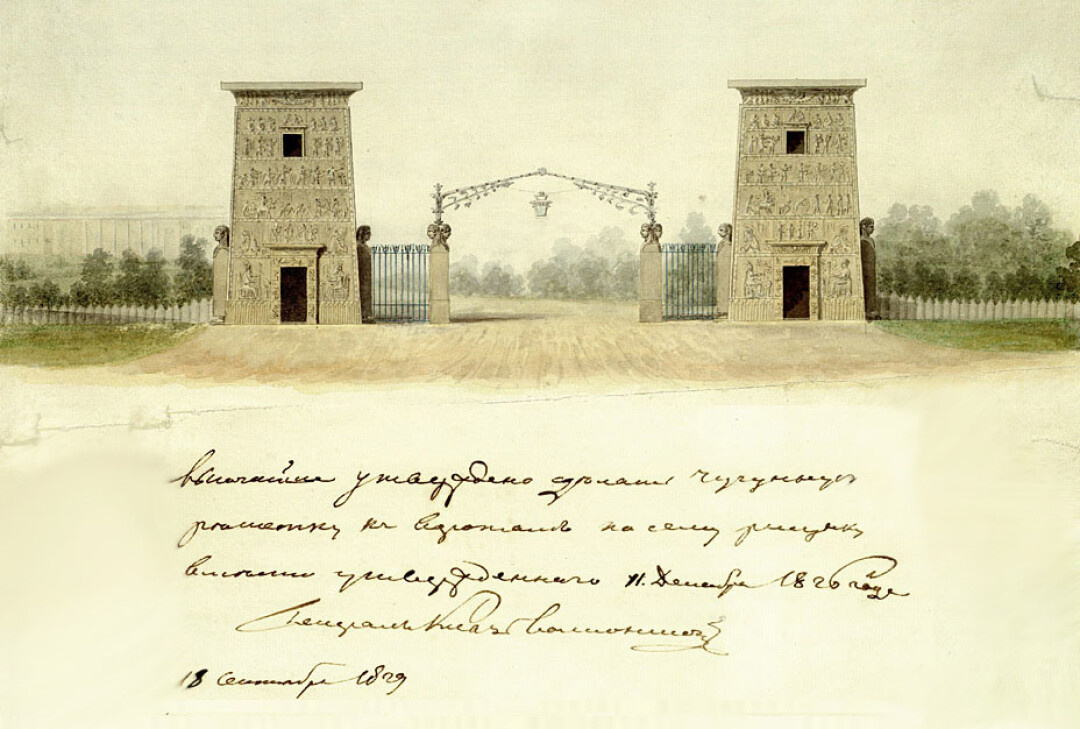 Высочайше утверждено сдѣлать чугунную
рѣшетку къ воротамъ по сему рисунку
вмѣсто утвержденнаго 11. Декабря 1826 года
Генералъ Князь Волконский
18 Сентября 1829